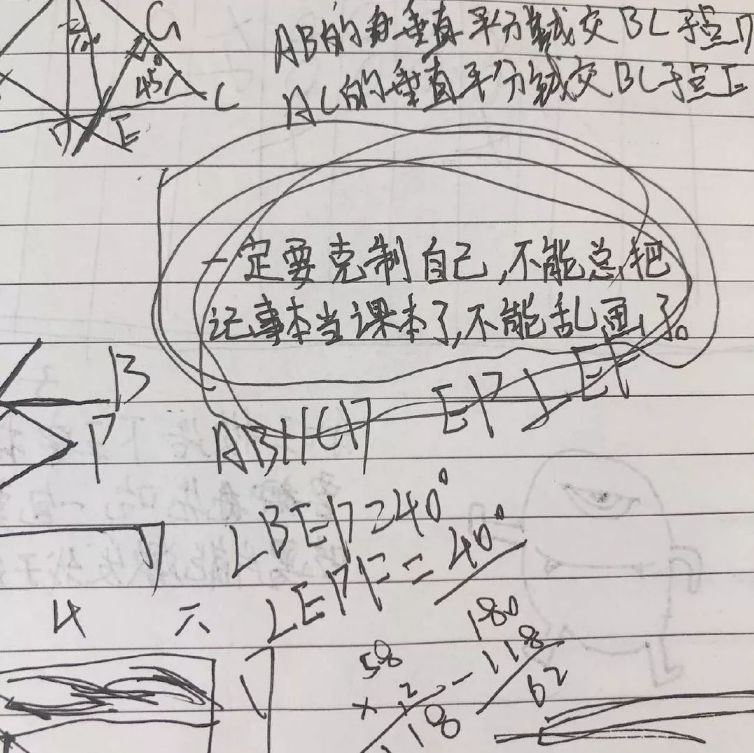 AB的垂直平分线交BC于点D
AC的垂直平分线交BC于点E
G
45°
C
D
E
一定要克制自己,不能总把
记事本当课本了,不能乱画了。
B
P
∠BEP=40°
∠EPF=40°
4
六
58
×2
118
180
-118
62